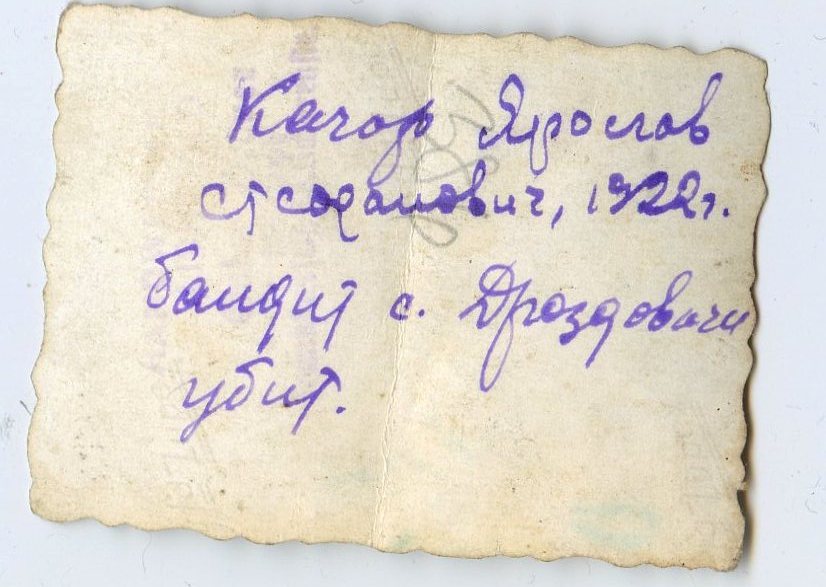 Качор Ярослав
Стефанович, 1922г.
бандит с. Дроздовичи
убит.